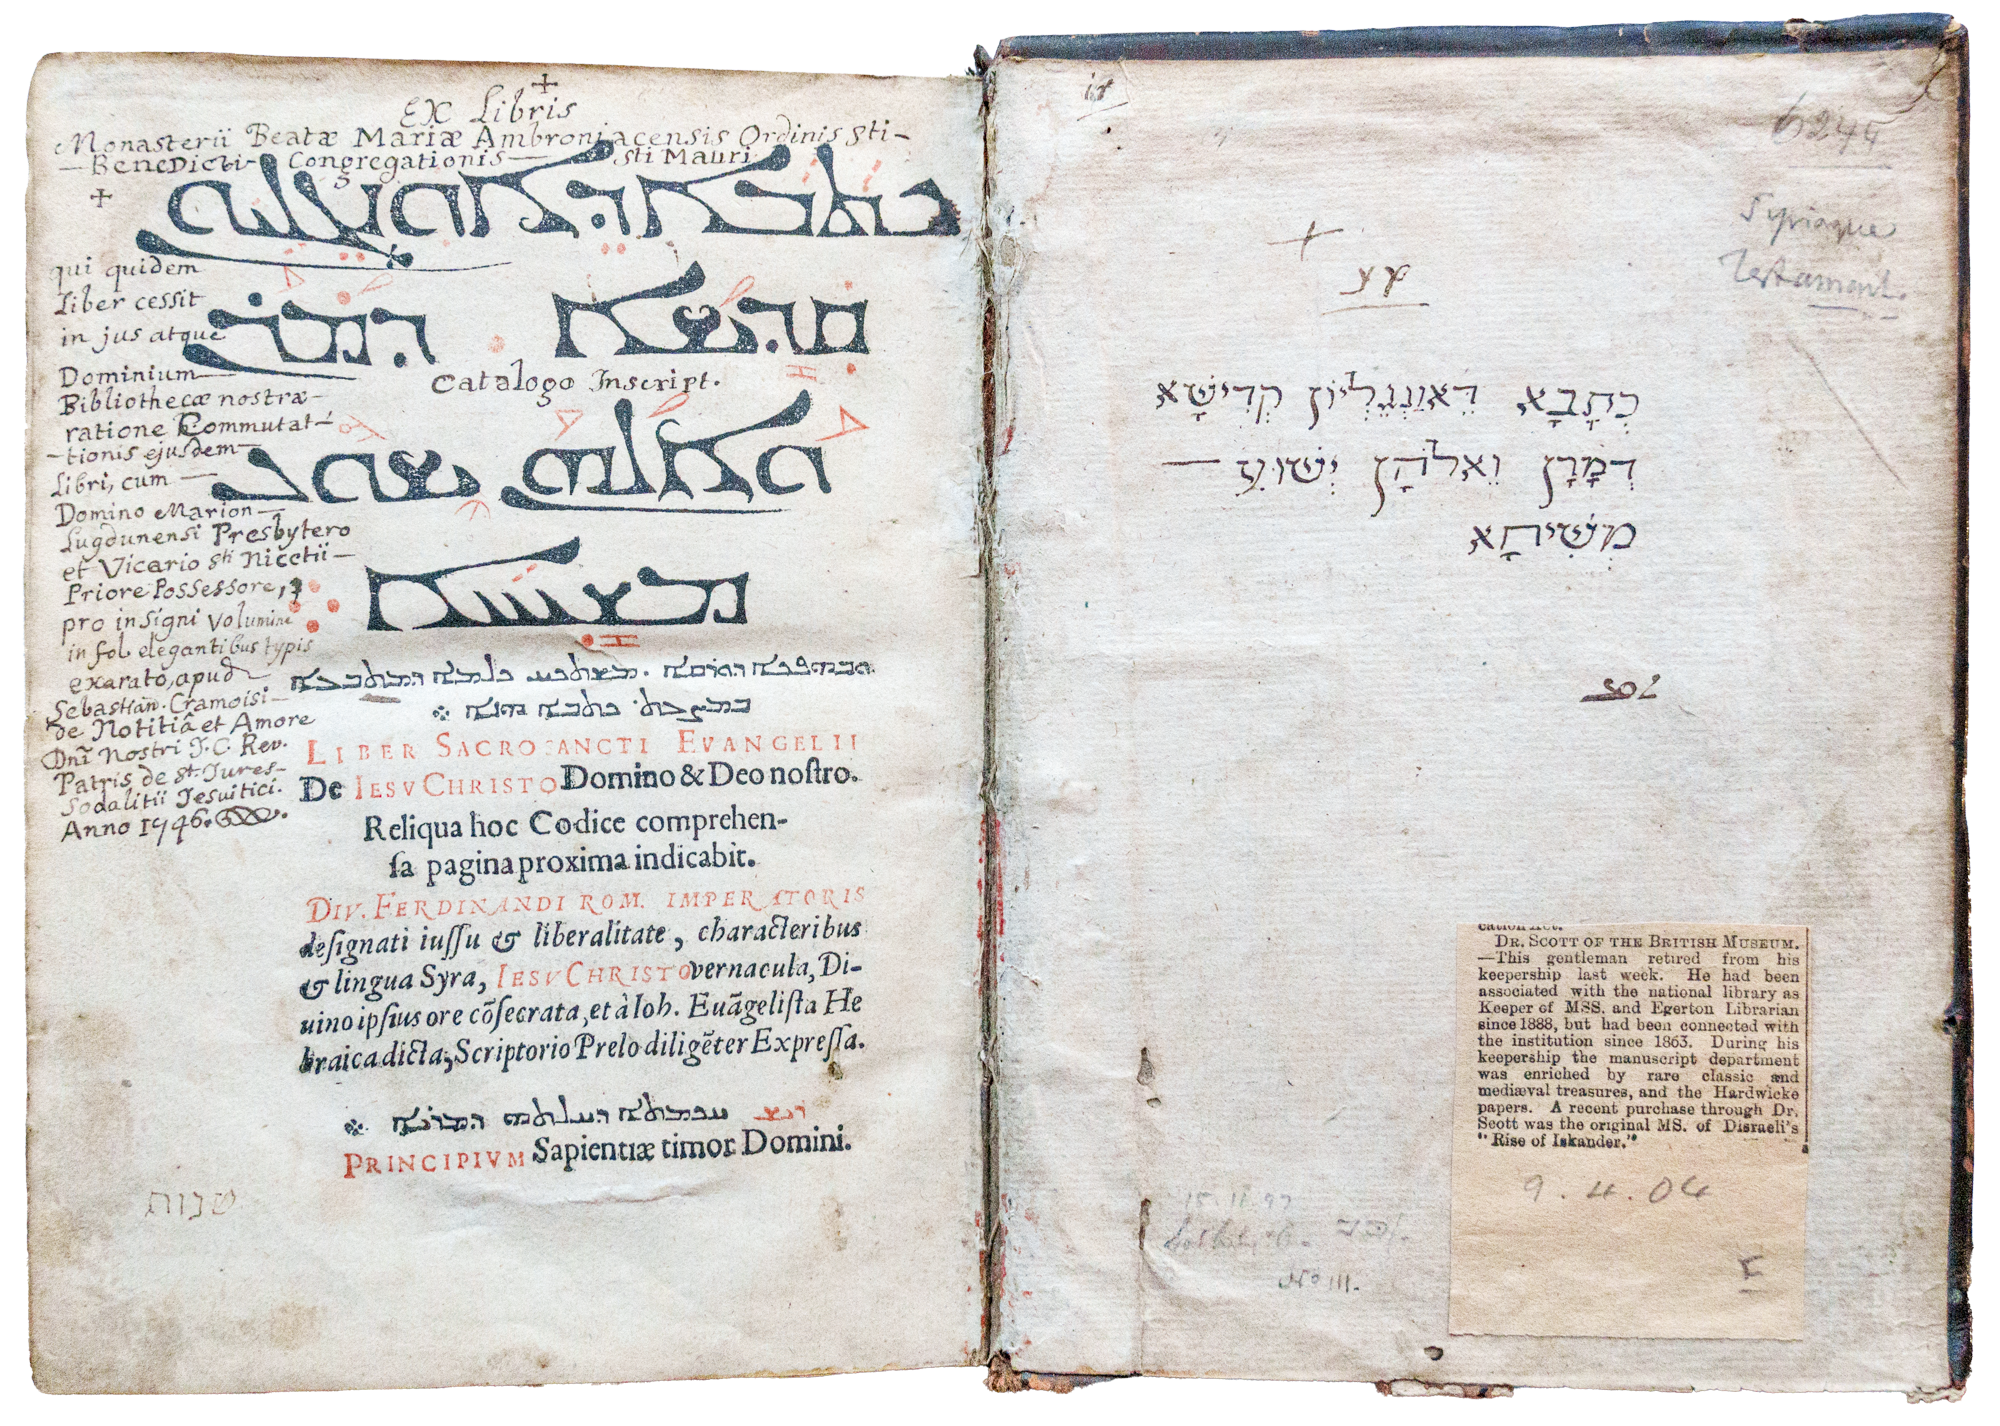 Ex Libris
Monasterii Beatæ Mariæ Ambroniacensis Ordinis Sti-
-Benedicti- Congregationis- Sti Mauri
ܟܬܒܐ ܕܐܘܢܓܠܝܘܢ
ܩܕܝܫܐ ܕܡܪܢ
Catalogo Inscript.
ܘܐܠܗܢ ܝܫܘܥ
ܡܫܝܚܐ
qui quidem
Liber cessit
in jus atque
Dominium
Bibliothecæ nostræ-
ratione Commutat-
-tionis ejusdem-
Libri, cum -
Domino Marion-
Lugdunensi Presbytero
et Vicario Sti Nicetii-
Priore Possessore,
pro insigni volumine
in fol. elegantibus typis
exarato, apud
Sebastian. Cramoisi-
de Notitiâ et Amore
Dni Nostri J. C. Rev.
Patris de St. Jures-
Sodalitii Jesuitici.
Anno 1746.
LIBER SACROSANCTI EVANGELII
De IESV CHRISTO Domino & Deo noſtro.
Reliqua hoc Codice comprehen-
ſa pagina proxima indicabit.
DIV. FERDINANDI ROM. IMPERATORIS
deſignati iuſſu & liberalitate, characteribus
& lingua Syra, IESV CHRISTO vernacula, Di-
uino ipſius ore cõſecrata, et à Ioh. Euãgeliſta He
braica dicta, Scriptorio Prelo diligẽter Expreſſa.
ܪܝܫ ܚܟܡܬܐ ܕܚܠܬܗ ܕܡܪܝܐ
PRINCIPIVM Sapientiæ timor Domini.
שנות
6245
Syriaque
Testament.
כְּתָבָא דֵּאוַנְגֵּלְיוֹן קְדִישָׁא
דְּמָרָן וֵאלֹהָן יְשׁוּע —
מְשִׁיחָא
cation Act.
DR. SCOTT OF THE BRITISH MUSEUM.
—This gentleman retired from his
keepership last week. He had been
associated with the national library as
Keeper of MSS. and Egerton Librarian
since 1888, but had been connected with
the institution since 1863. During his
keepership the manuscript department
was enriched by rare classic and
mediæval treasures, and the Hardwicke
papers. A recent purchase through Dr.
Scott was the original MS. of Disraeli's
"Rise of Iskander."
9.4.04
15.11.97
No III.